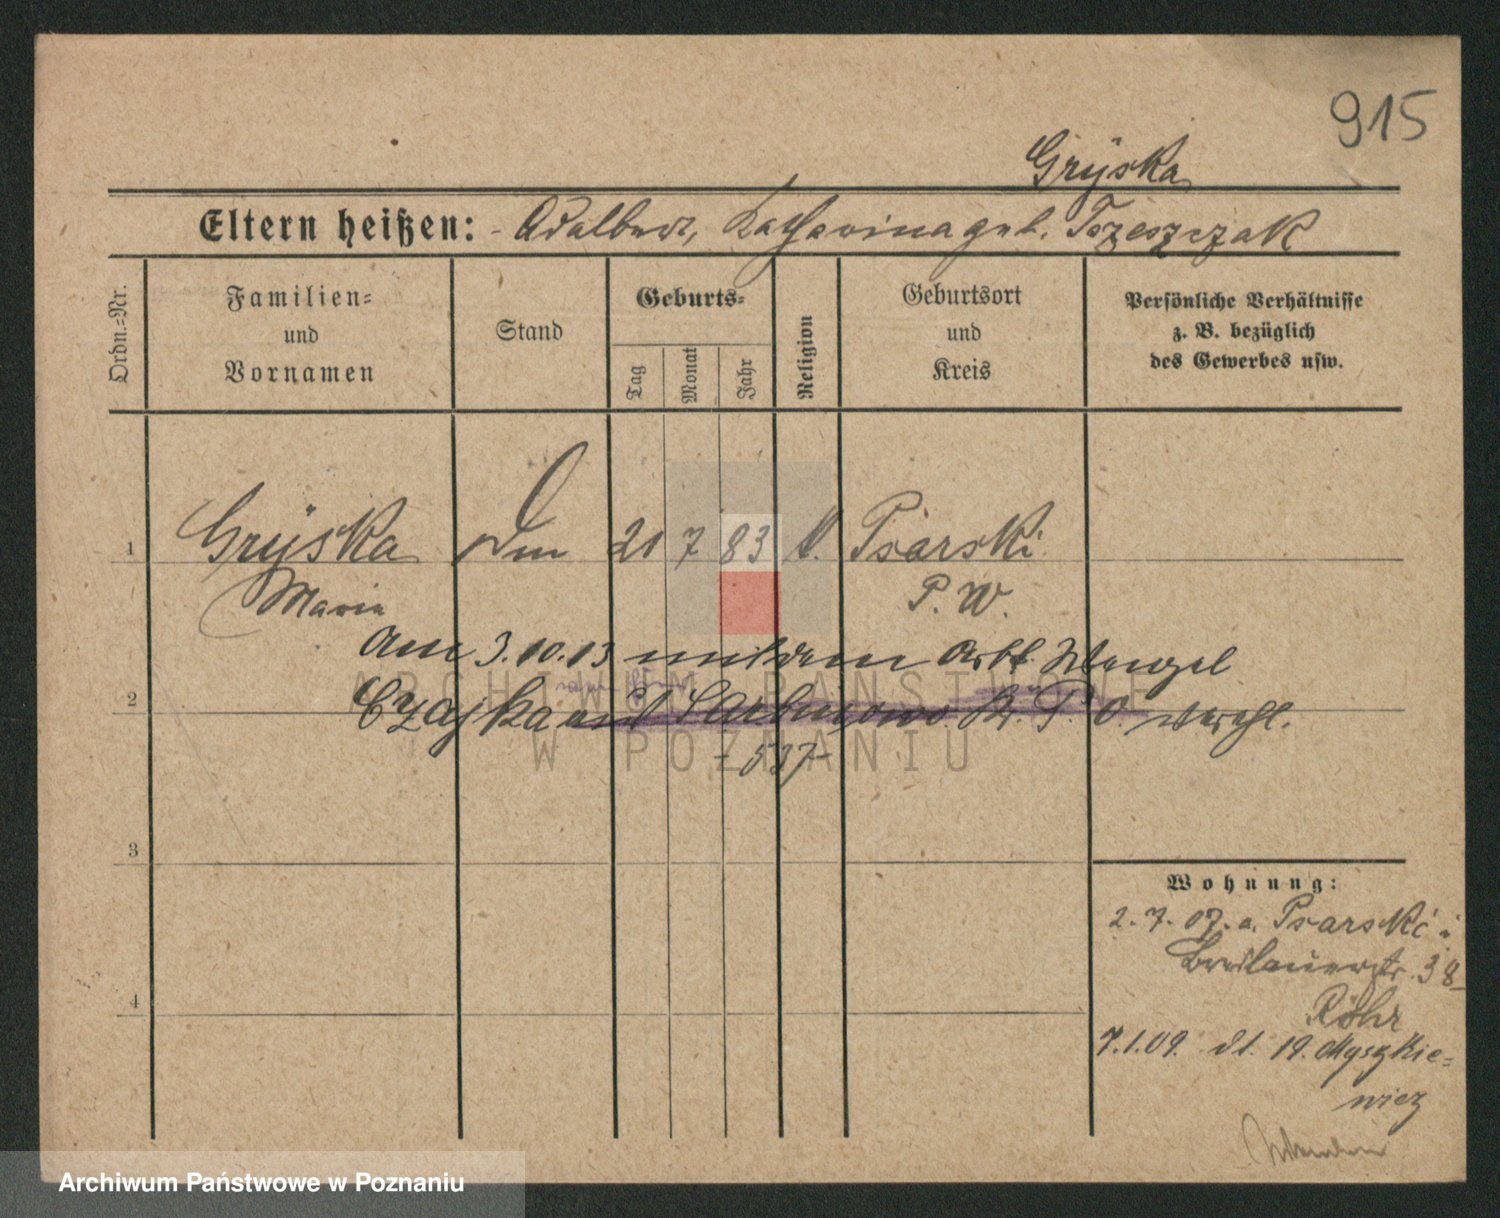 915
Grÿska
Eltern heißen: Adalbert, Katharina geb. Tszeszczak
Ordn.=Nr.
Familien=
und
Vornamen
Stand
Geburts=
Tag
Monat
Jahr
Religion
Geburtsort
und
Kreis
Persönliche Verhältnisse
z. B. bezüglich
des Gewerbes usw.
1 Grÿska 21 7 83 k. Psarski
Maria P. W.
am 3.10.13 mit dem Arb.
2 Czajka aus Kr. P. O. verehl.
-537-
3
Wohnung:
2.7.07. a. Psarski
Breslauerstr. 38
Röhr
4
7.1.09. 19. Myszkie=
wicz
ARCHIWUM PAŃSTWOWE
W POZNANIU
Archiwum Państwowe w Poznaniu